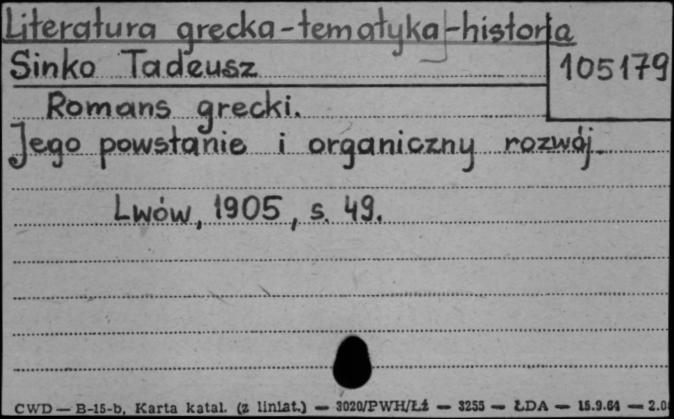 Literatura grecka-tematyka-historia
Sinko Tadeusz
105179
Romans grecki.
Jego powstanie i organiczny rozwój.
Lwów, 1905, s. 49.
CWD — B-15-b, Karta katal. (z liniat.) — 3020/PWH/Łź — 3255 — ŁDA — 15.9.64 — 2.0